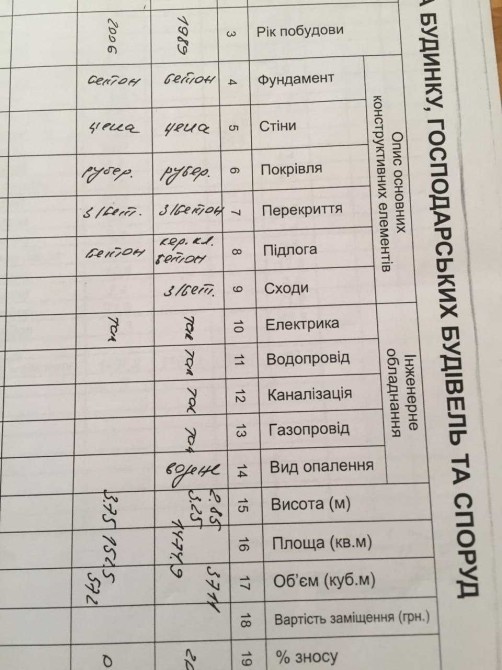 А БУДИНКУ, ГОСПОДАРСЬКИХ БУДІВЕЛЬ ТА СПОРУД
Опис основних
конструктивних елементів
Інженерне
обладнання
Рік побудови 3 1989 2006
Фундамент 4 бетон бетон
Стіни 5 цегла цегла
Покрівля 6 рубер. рубер.
Перекриття 7 з/бетон з/бет.
Підлога 8 кер. кл. бетон бетон
Сходи 9 з/бет.
Електрика 10 так так
Водопровід 11 так
Каналізація 12 так
Газопровід 13 так
Вид опалення 14
Висота (м) 15 2.85 3.25 3.75
Площа (кв.м) 16 1474,9 152,5
Об'єм (куб.м) 17 572
Вартість заміщення (грн.) 18
% зносу 19 20 0